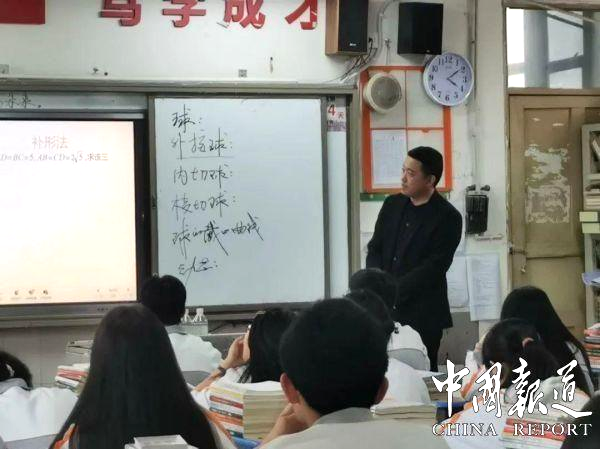 马学成才
补形法
D=BC=5,AB=CD=2√3,求该三
球:
外接球:
内切球:
棱切球:
球的截口曲线
4
天
中国报道
CHINA REPORT